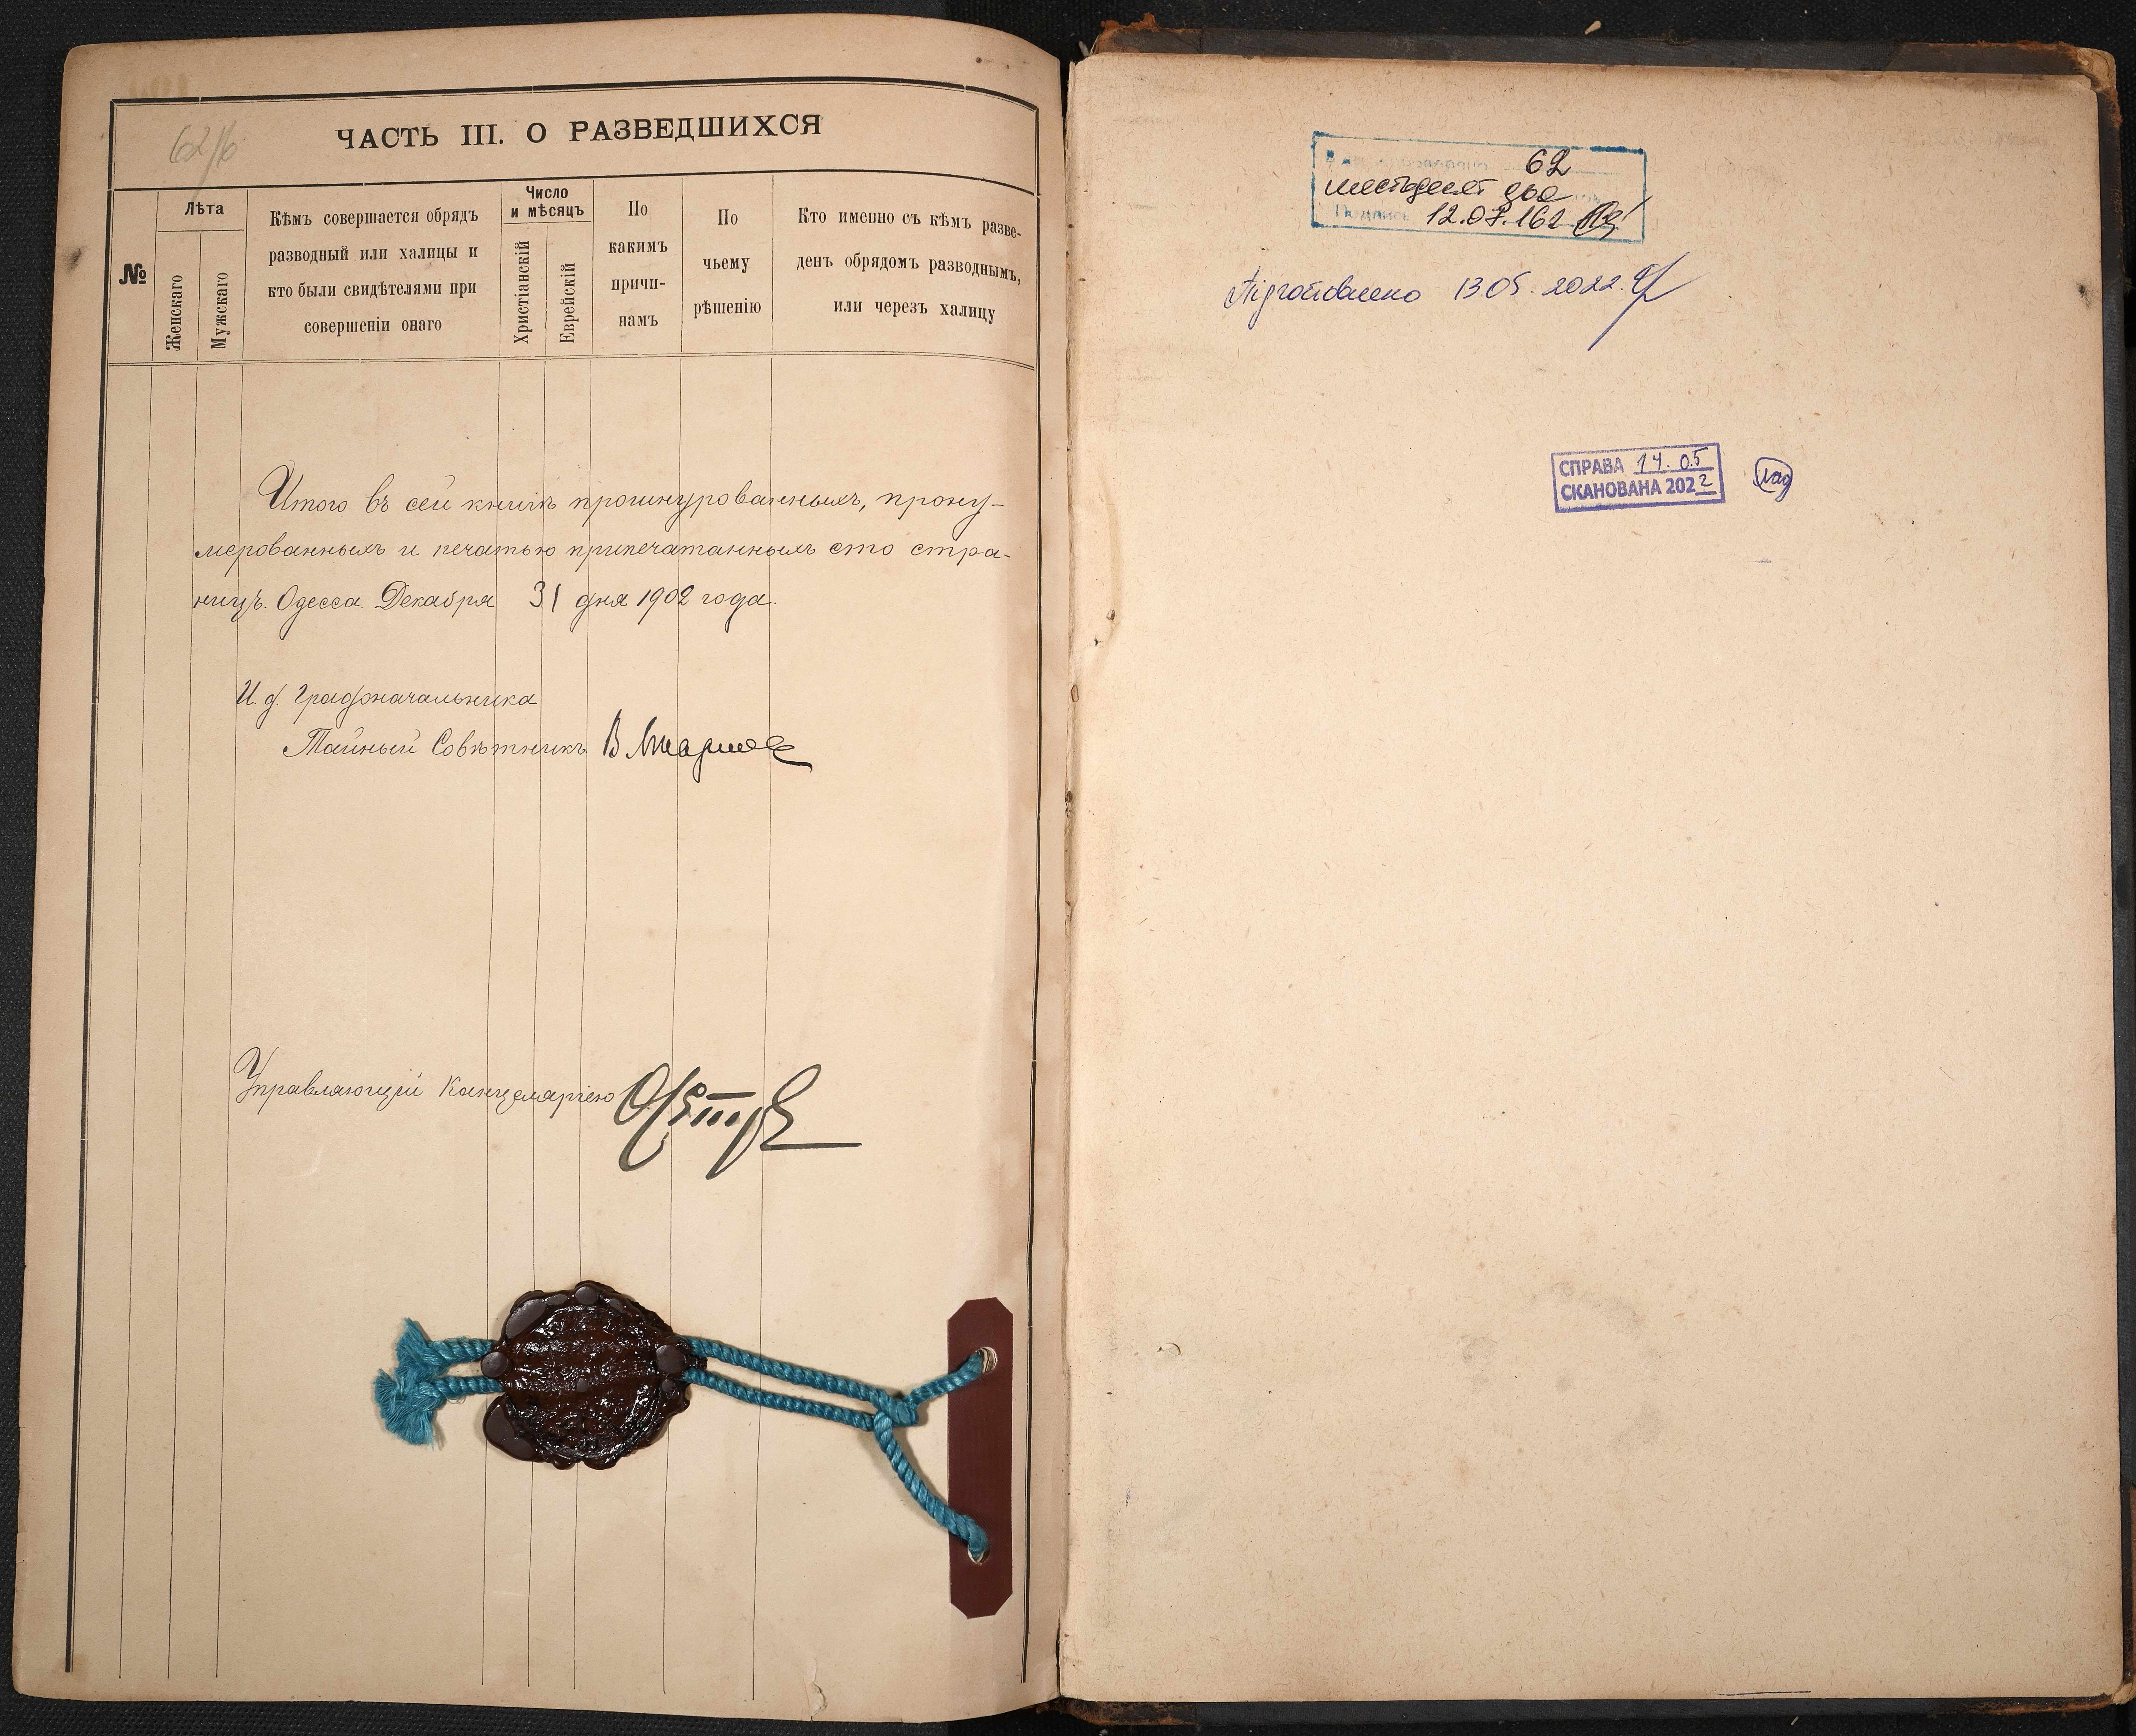 62/б
ЧАСТЬ III. О РАЗВЕДШИХСЯ
№
Лѣта
Женскаго
Мужскаго
Кѣмъ совершается обрядъ
разводный или халицы и
кто были свидѣтелями при
совершеніи онаго
Число
и мѣсяцъ
Христіанскій
Еврейскій
По
какимъ
причи-
намъ
По
чьему
рѣшенію
Кто именно съ кѣмъ разве-
денъ обрядомъ разводнымъ,
или черезъ халицу
Итого въ сей книгѣ прошнурованныхъ, прону-
мерованныхъ и печатью припечатанныхъ сто стра-
ницъ. Одесса. Декабря 31 дня 1902 года.
И. д. Градоначальника
Тайный Совѣтникъ
Управляющій Канцеляріею
62
шестьдесят два
12.07.162
Підготовлено 13.05.2022.
СПРАВА 14.05
СКАНОВАНА 2022